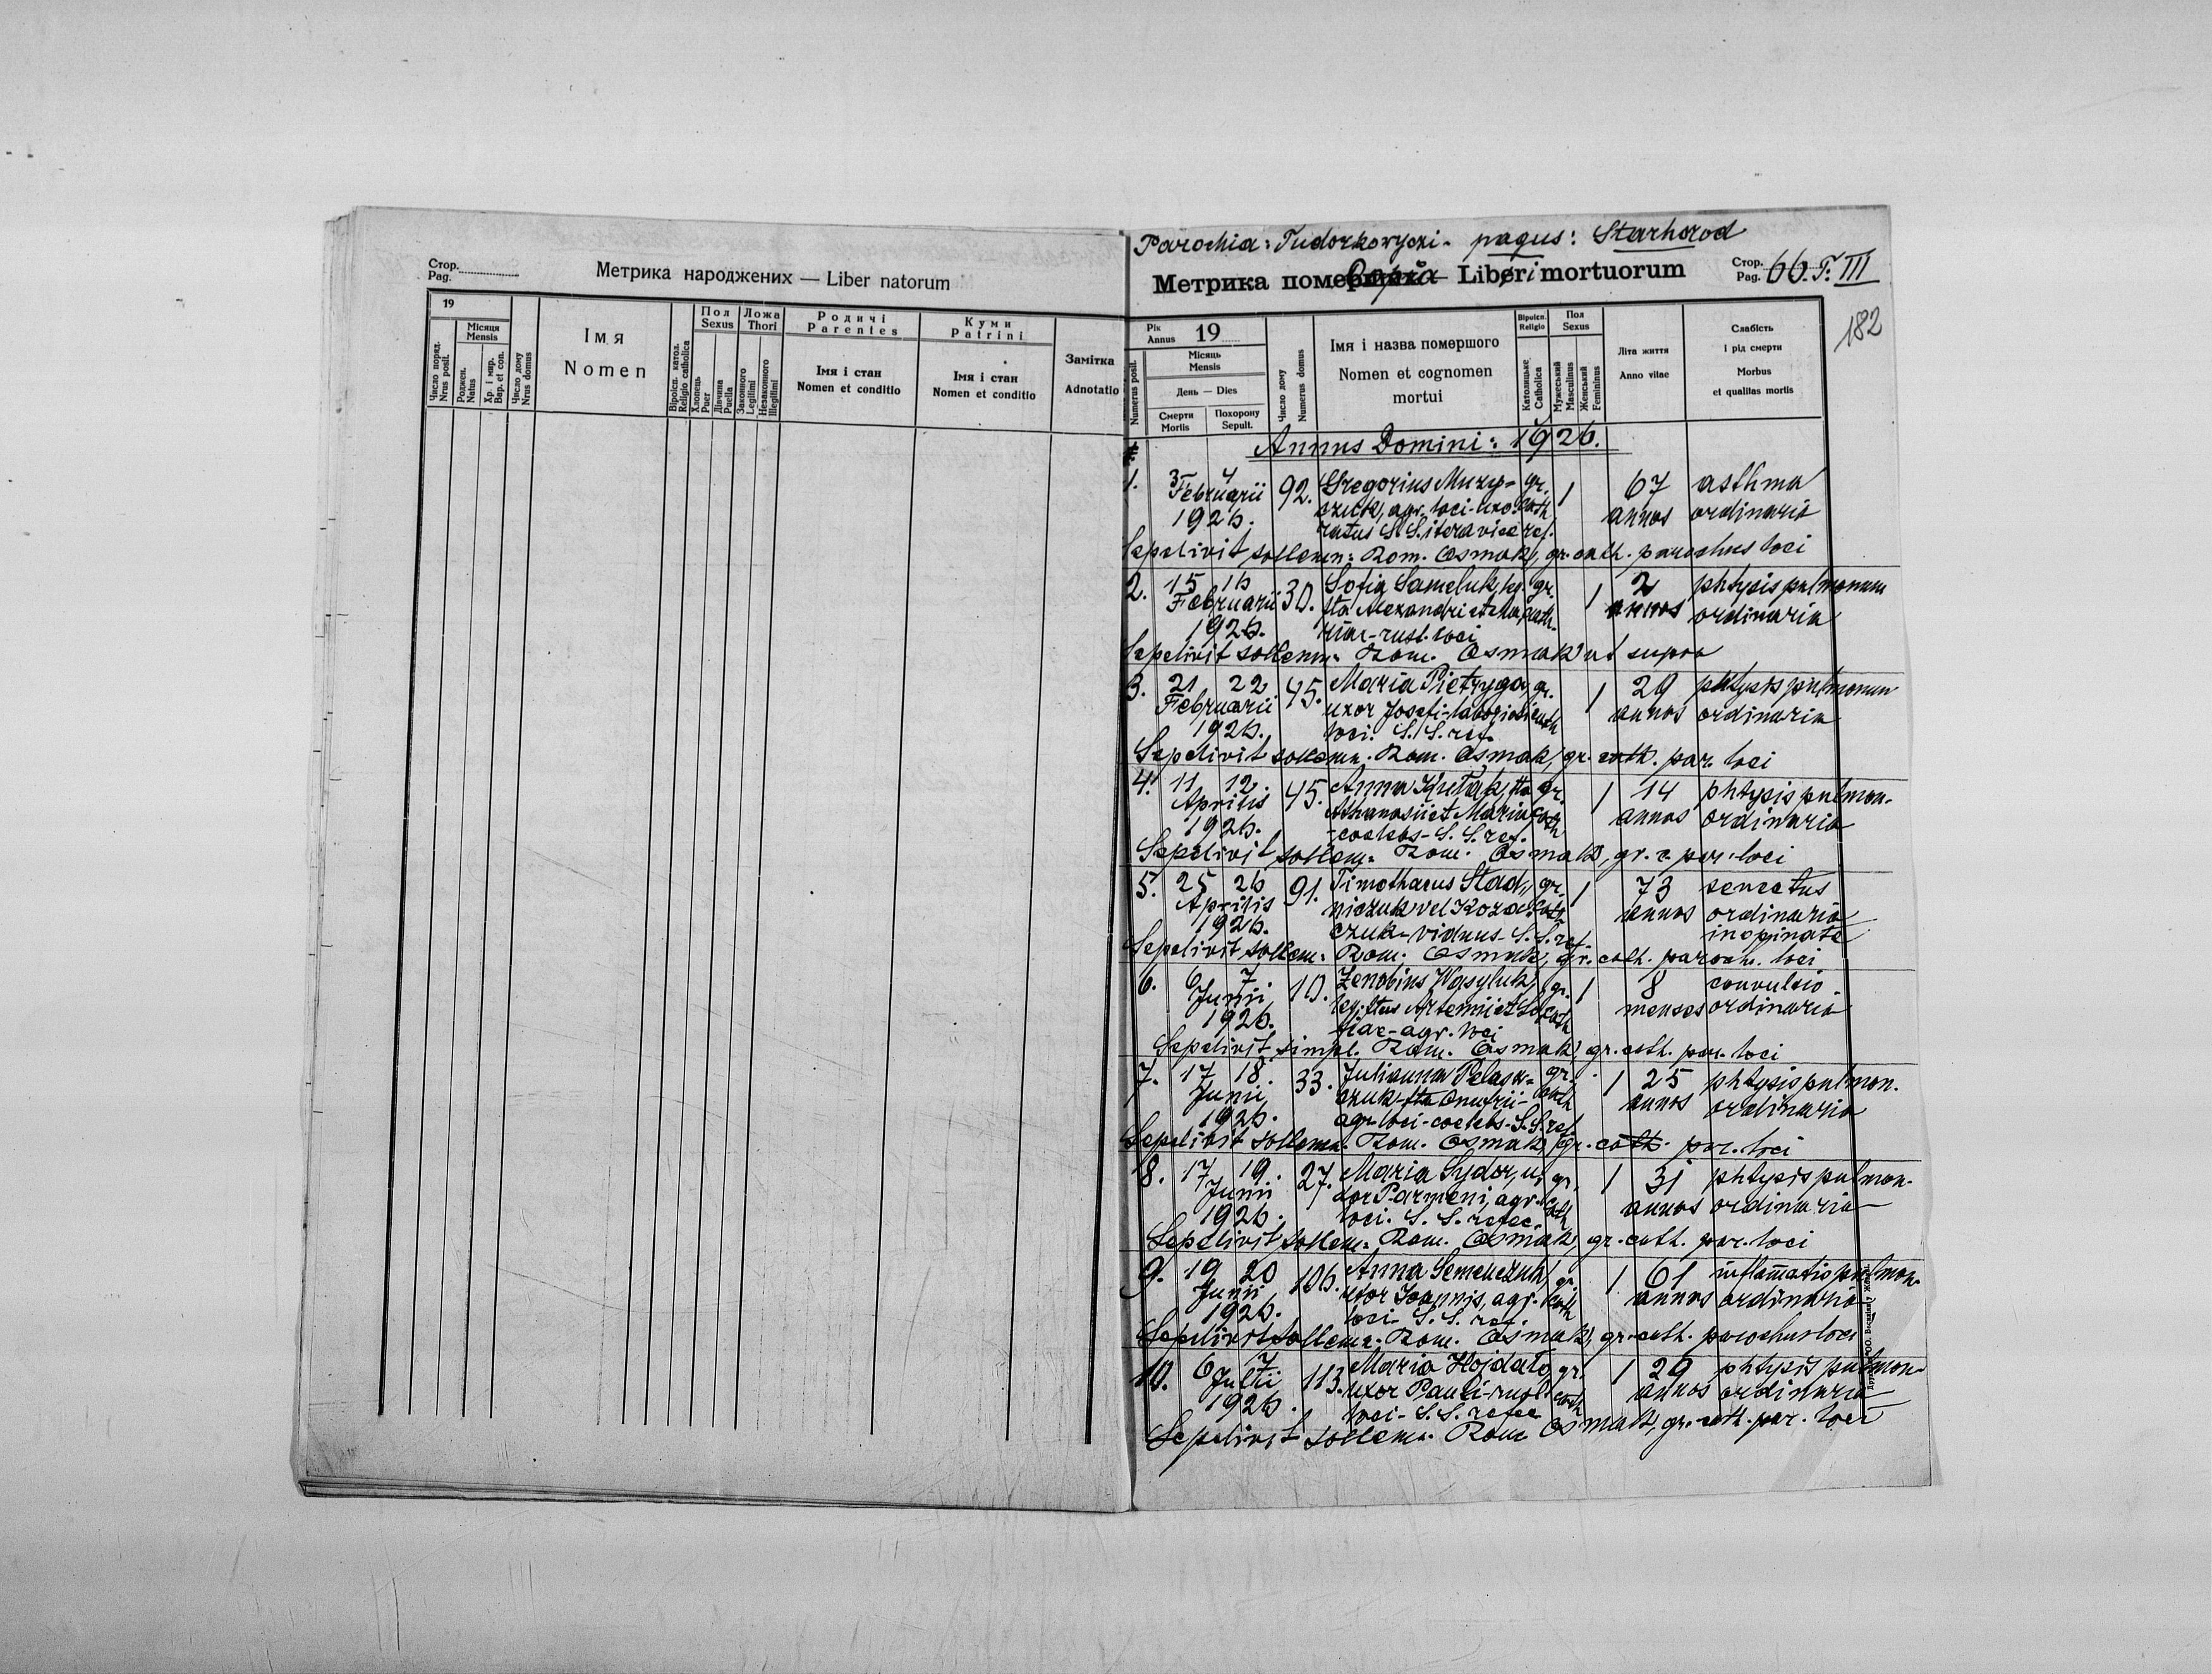 Стор.
Pag.
Метрика народжених — Liber natorum
19
Число поряд.
Nrus posit.
Місяця
Mensis
Роджен.
Natus
Хр. і мир.
Bap. et con.
Число дому
Nrus domus
Імя
Nomen
Віросп. катол.
Religio catholica
Пол
Sexus
Хлопець
Puer
Дівчина
Puella
Ложа
Thori
Законного
Legitimi
Незаконного
Illegitimi
Родичі
Parentes
Імя і стан
Nomen et conditio
Куми
Patrini
Імя і стан
Nomen et conditio
Замітка
Adnotatio
Parochia: Tudorkowyczi - pagus: Starhorod
Метрика померших Copia Liberi mortuorum
Стор.
Pag. 66. T. III
182
Рік
Annus 19
Numerus posit.
Місяць
Mensis
День — Dies
Смерти
Mortis
Похорону
Sepult.
Число дому
Numerus domus
Імя і назва помершого
Nomen et cognomen
mortui
Віросп.
Religio
Католицьке
Catholica
Пол
Sexus
Мужеський
Masculinus
Женський
Femininus
Літа життя
Anno vitae
Слабість
і рід смерти
Morbus
et qualitas mortis
Annus Domini: 1926.
1. 3 4 92. Gregorius Muzy- gr. 1 67 asthma
Februarii czuk, agr. loci-uxo- cath annos ordinaria
1926. ratus S. S. itera vice ref.
Sepelivit sollemn: Rom. Osmak, gr. cath. parochus loci
2. 15 16 30. Sofia Sameluk, lg. gr. 1 2 phtysis pulmonum
Februarii fta Alexandri et Ma- cath. annos ordinaria
1926. riae - rust. loci
Sepelivit sollemn: Rom. Osmak ut supra
3. 21 22 45. Maria Pietryga gr. 1 29 phtysis pulmonum
Februarii uxor Josefi - laboriosi cath annos ordinaria
1926. loci. S. S. ref.
Sepelivit sollemn. Rom. Osmak, gr. cath. par. loci
4. 11 12. 45. Anna fta gr. 1 14 phtysis pulmon.
Aprilis Athanasii et Maria cath annos ordinaria
1926. - coelebs - S. S. ref.
Sepelivit sollem: Rom. Osmak, gr. c. par. loci
5. 25 26 91. Timothaeus Stad„ gr. 1 73 senectus
Aprilis niczuk vel Koza cath annos ordinaria
1926. czuk - viduus - S. S. ref. inopinate
Sepelivit sollem: Rom. Osmak, gr. cath. paroch. loci
6. 6 7 10. Zenobius Wasyluk, gr. 1 8 convulsio
Junii leg. ftus Artemii et So cath menses ordinaria
1926. fiae - agr. loci
Sepelivit simpl. Rom. Osmak, gr. cath. par. loci
7. 17 18. 33. Julianna Pelasz- gr. 1 25 phtysis pulmon.
Junii czuk fta Onufrii - cath annos ordinaria
1926. agr. loci - coelebs - S. S. ref.
Sepelivit sollemn. Rom. Osmak, gr. cath. par. loci
8. 17 19. 27. Maria Sydor, u- gr. 1 31 phtysis pulmon.
Junii xor Parmeni, agr. cath annos ordinaria
1926. loci. S. S. refec.
Sepelivit sollem: Rom. Osmak, gr. cath. par. loci
9. 19 20 106. Anna Semenczuk, gr. 1 61 inflamatio pulmon.
Junii uxor Joannis, agr. cath annos ordinaria
1926. loci - S. S. ref.
Sepelivit sollemn. Rom. Osmak, gr. cath. parochus loci
10. 6 7 113. Maria Hojdalo gr. 1 29 phtysis pulmon.
Julii uxor Pauli - rust. cath annos ordinaria
1926. loci - S. S. refec
Sepelivit sollemn. Rom Osmak, gr. cath. par. loci